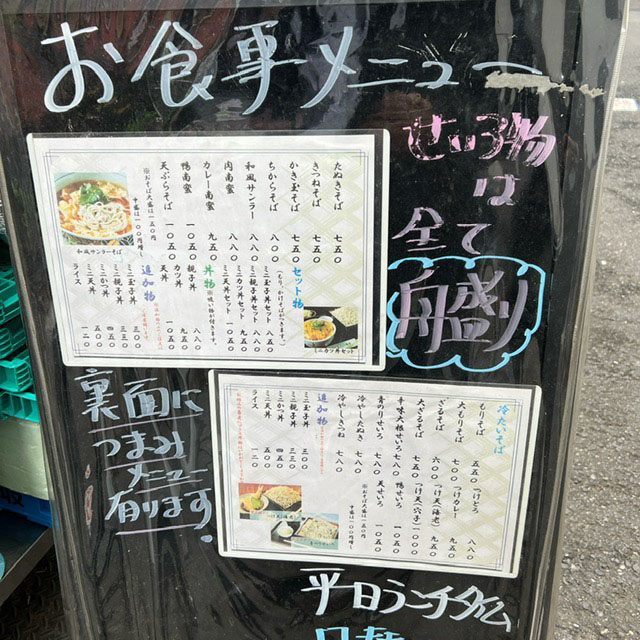 お食事メニュー
せいろ物
は
全て
舟盛り
たぬきそば 七五〇
きつねそば 七五〇
かき玉そば 七五〇
ちからそば 八〇〇
和風サンラー 八八〇
肉南蛮 八八〇
カレー南蛮 九五〇
鴨南蛮 一〇五〇
天ぷらそば 一〇五〇
※おそば大盛は一五〇円
和風サンラそば
セット物
ミニ玉子丼セット 八八〇
ミニ親子丼セット 八八〇
ミニかつ丼セット 九五〇
ミニ天丼セット
ミニカツ丼セット
丼物
玉子丼 八五〇
親子丼
カツ丼 九五〇
天丼 一〇五〇
追加物
ミニ玉子丼 三三〇
ミニ親子丼 三三〇
ミニかつ丼
ミニ天丼 五〇〇
ライス
冷たいそば
もりそば 五五〇
大もりそば 七〇〇
ざるそば 六〇〇
大ざるそば
辛味大根せいろ
青のりせいろ
冷やしたぬき 七八〇
冷やしきつね 七八〇
つけとろ 八八〇
つけカレー 九五〇
つけ天(海老)
つけ天(穴子)
鴨せいろ
天せいろ
※おそば大盛は一五〇円
追加物
ミニ玉子丼 三〇〇
ミニ親子丼 三〇〇
ミニかつ丼 四五〇
ミニ天丼 四五〇
ライス
裏面に
つまみ
メニュー
有ります。
平日ランチタイム